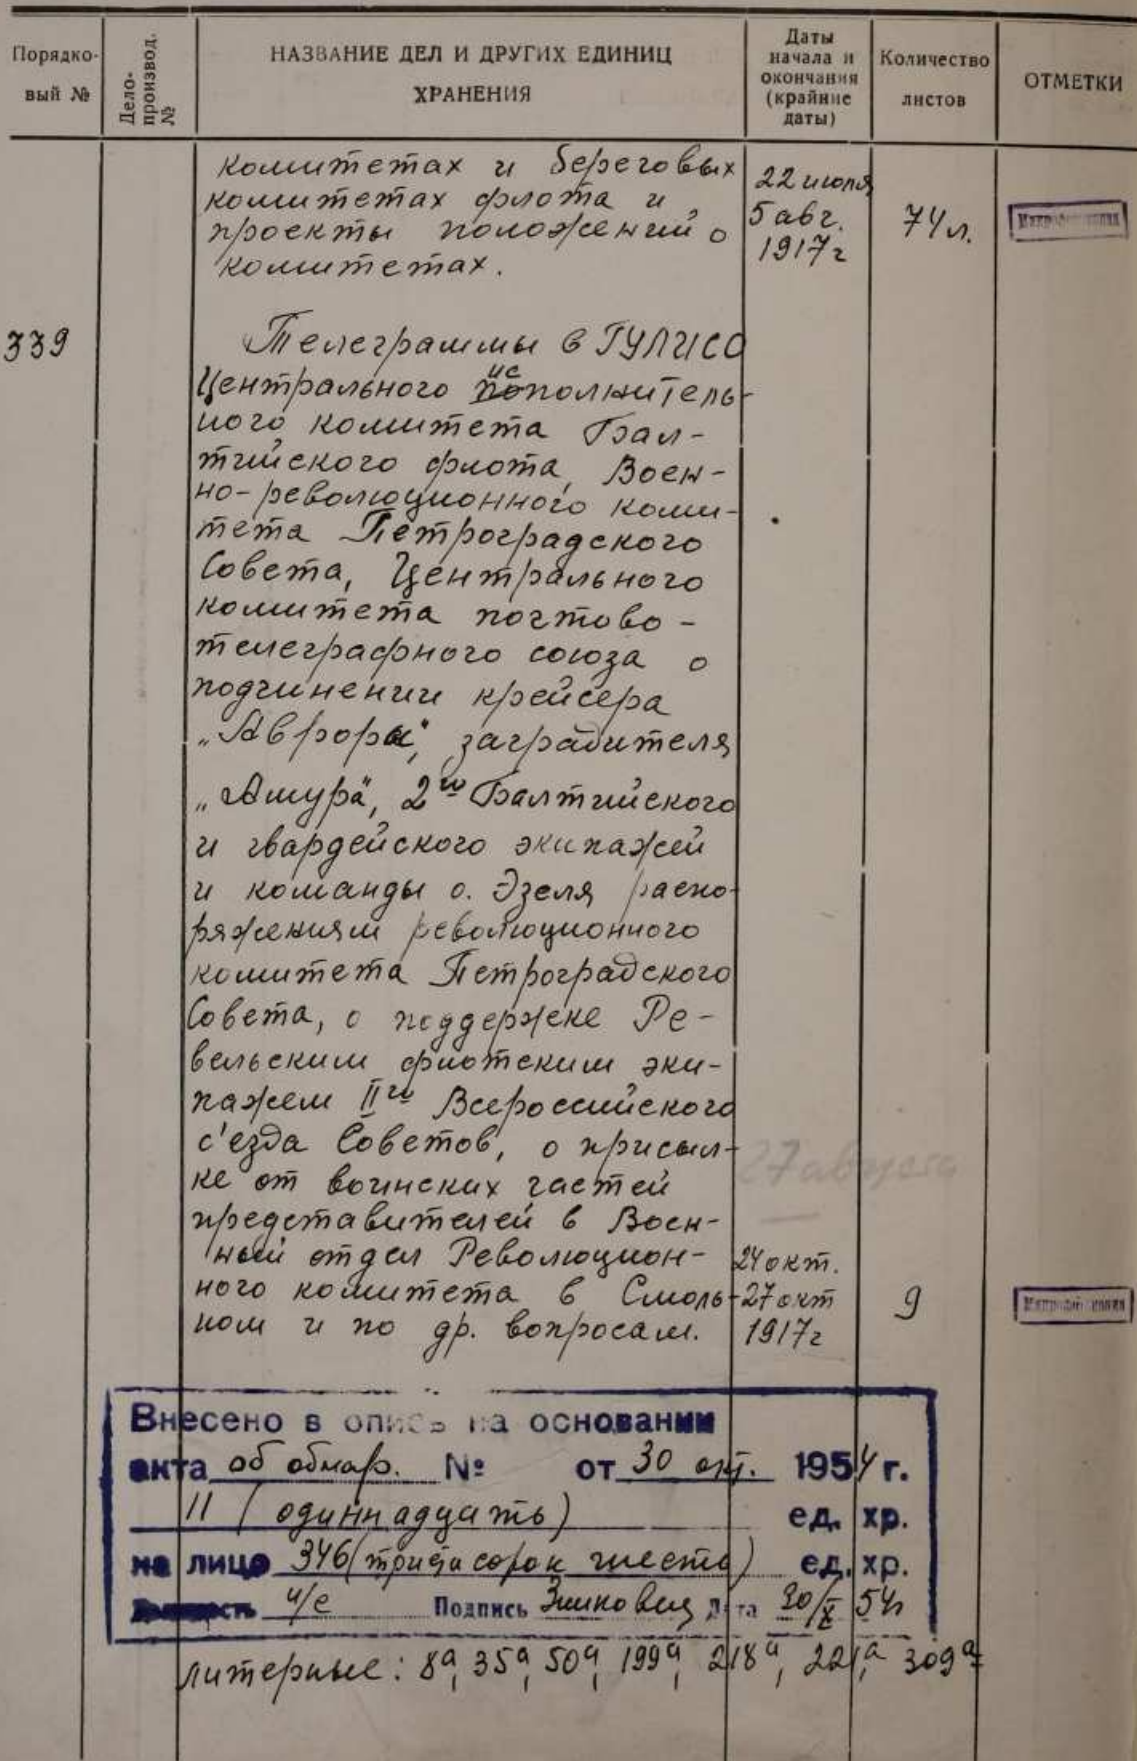 Порядко-
вый №
Дело-
производ.
№
НАЗВАНИЕ ДЕЛ И ДРУГИХ ЕДИНИЦ
ХРАНЕНИЯ
Даты
начала и
окончания
(крайние
даты)
Количество
листов
ОТМЕТКИ
комитетах и береговых
комитетах флота и
проекты положений о
комитетах.
22 июля
5 авг.
1917г
74 л.
339
Телеграммы в ГУЛИСО
Центрального исполнитель-
ного комитета Бал-
тийского флота, Воен-
но-революционного коми-
тета Петроградского
Совета, Центрального
комитета почтово-
телеграфного союза о
подчинении крейсера
„Аврора“, заградителя
„Амура“, 2го Балтийского
и гвардейского экипажей
и команды о. Эзеля распо-
ряжениям революционного
комитета Петроградского
Совета, о поддержке Ре-
вельским флотским эки-
пажем IIго Всероссийского
с'езда Советов, о присыл-
ке от воинских частей
представителей в Воен-
ный отдел Революцион-
ного комитета в Смоль-
ном и по др. вопросам.
27 августа
24 окт.
27 окт
1917г
9
Внесено в опись на основании
акта об обнар. № от 30 окт. 1954 г.
11 (одиннадцать) ед. хр.
на лицо 346 (триста сорок шесть) ед. хр.
Подпись Дата 30/X 54г
литерные: 8а, 35а, 50а, 199а, 218а, 221а, 309а